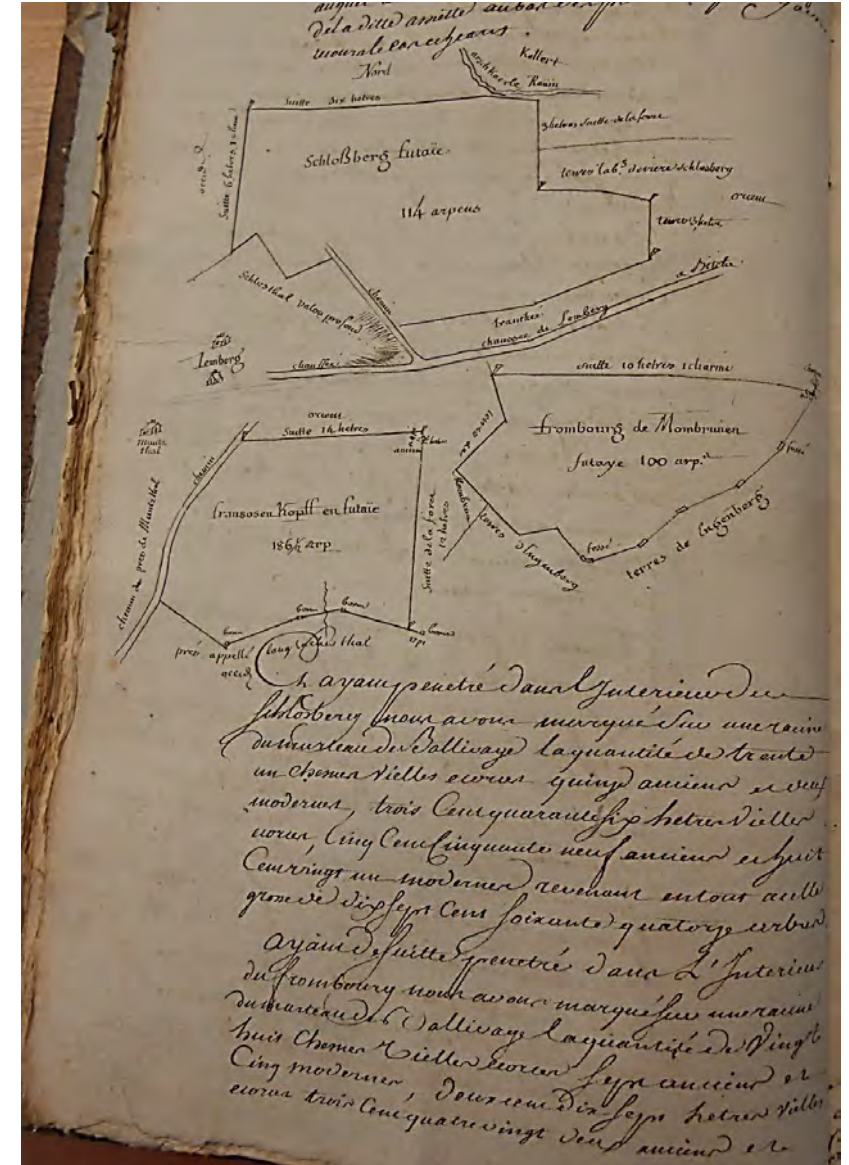 de la ditte
Nord
Kellert
Ravin
suitte dix hetres
3 hetres suitte de la foret
Schloßberg futaïe
terres lab.s deriere Schlosberg
114 arpens
orient
Suitte 6 hetres 1 chene
Schlosthal valon profond
chemin
tranchée
a Bitche
chaussée de Lemberg
Lemberg
chaussée
suitte 10 hetres 1 charme
orient
Suitte 14 hetres
frombourg de Mombrunen
futaye 100 arp.s
fossé
Muntz
thal
chemin
ancien
fransosen Kopff en futaïe
186½ arp
Suitte de la foret
12 hetres
terres de
Mombrun
terres d'lugenberg
fossé
terres de lugenberg
chemin des prés de Muntzthal
born
born
born
borne
prés appellé
thal
occid
Et ayant penetré dans l'Interieur du
Schlosberg nous avons marqué sur une racine
du marteau de Ballivage la quantité de trente
un chesnes vielles ecorces quinze anciens et deux
modernes, trois Cent quarante six hetres vielles
ecorces, Cinq Cent Cinquante neuf anciens et huit
Cent vingt un modernes revenant en tout a celle
grosse de dix sept Cent soixante quatorze arbres
Ayant de suitte penetré dans L'Interieur
du frombourg nous avons marqué sur une racine
du marteau de Ballivage la quantité de Vingt
huit Chesnes Vielles ecorces sept anciens et
Cinq modernes, deux cent dix sept hetres vielles
ecorces trois Cent quatre vingt deux anciens et